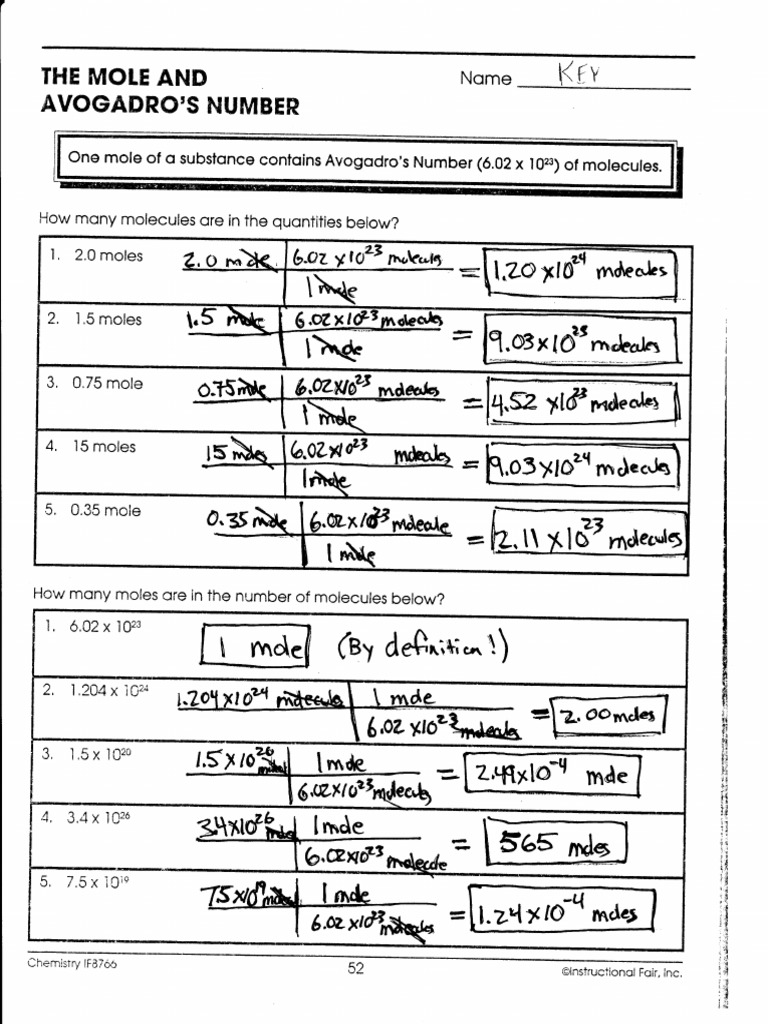 THE MOLE AND
AVOGADRO'S NUMBER
Name KEY
One mole of a substance contains Avogadro's Number (6.02 x 10²³) of molecules.
How many molecules are in the quantities below?
1. 2.0 moles 2.0 mole | 6.02 x10²³ molecules / 1 mole = 1.20 x10²⁴ molecules
2. 1.5 moles 1.5 mole | 6.02x10²³ molecules / 1 mole = 9.03x10²³ molecules
3. 0.75 mole 0.75 mole | 6.02x10²³ molecules / 1 mole = 4.52 x10²³ molecules
4. 15 moles 15 moles | 6.02x10²³ molecules / 1 mole = 9.03x10²⁴ molecules
5. 0.35 mole 0.35 mole | 6.02x10²³ molecule / 1 mole = 2.11 x10²³ molecules
How many moles are in the number of molecules below?
1. 6.02 x 10²³ 1 mole (By definition!)
2. 1.204 x 10²⁴ 1.204x10²⁴ molecules | 1 mole / 6.02 x10²³ molecules = 2.00 moles
3. 1.5 x 10²⁰ 1.5 x10²⁰ | 1 mole / 6.02x10²³ molecules = 2.49x10⁻⁴ mole
4. 3.4 x 10²⁶ 3.4x10²⁶ | 1 mole / 6.02x10²³ molecule = 565 moles
5. 7.5 x 10¹⁹ 7.5x10¹⁹ | 1 mole / 6.02 x10²³ molecules = 1.24x10⁻⁴ moles
Chemistry IF8766
52
©Instructional Fair, Inc.